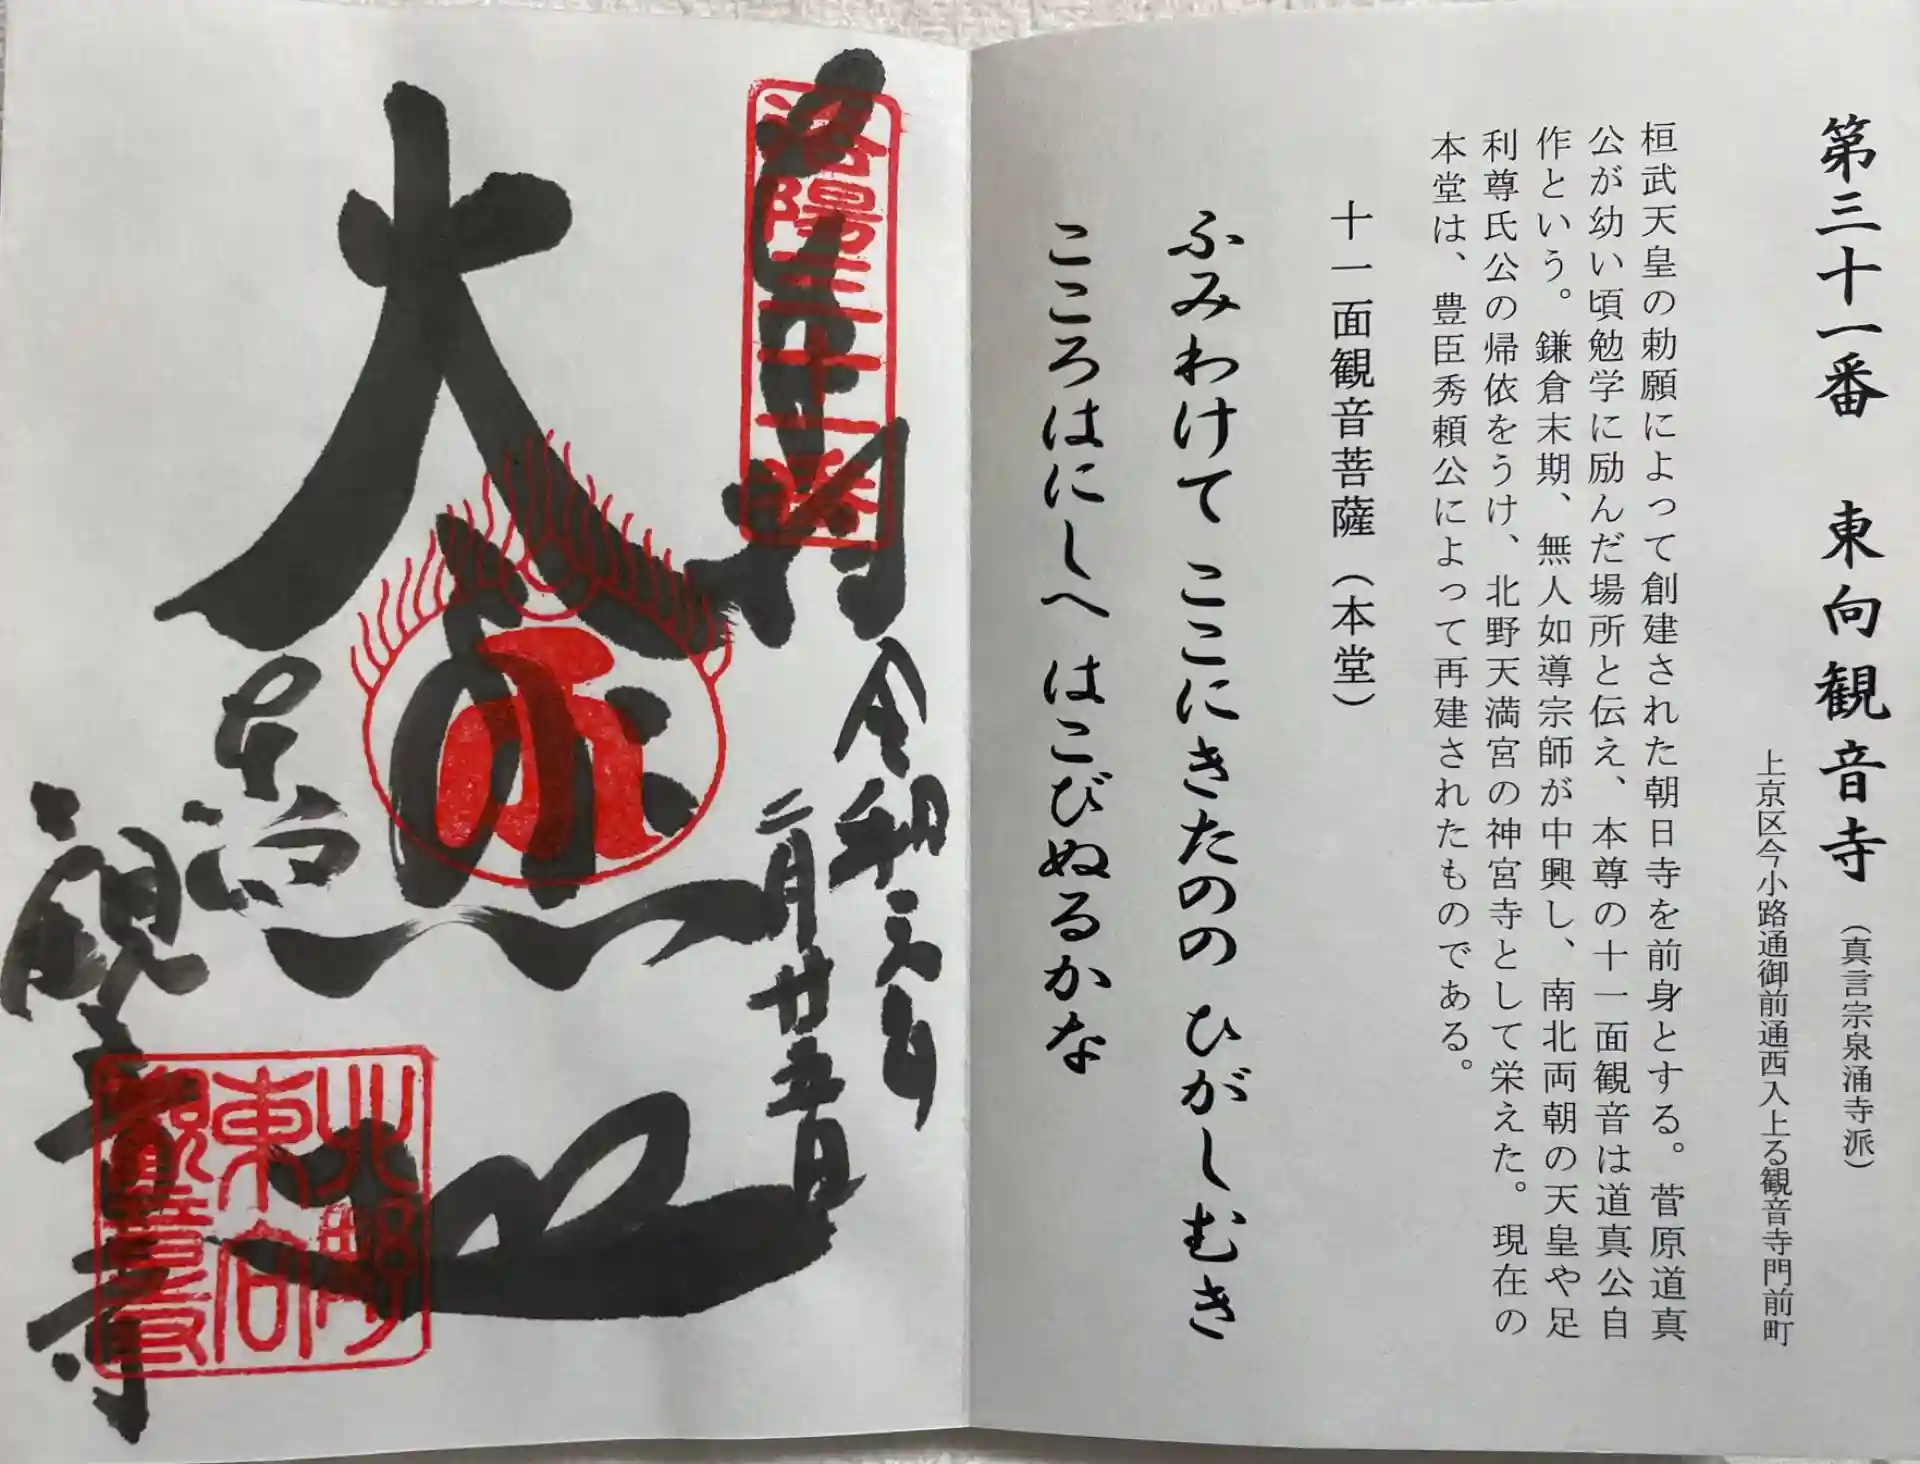 第三十一番 東向観音寺（真言宗泉涌寺派）
上京区今小路通御前通西入上る観音寺門前町
桓武天皇の勅願によって創建された朝日寺を前身とする。菅原道真
公が幼い頃勉学に励んだ場所と伝え、本尊の十一面観音は道真公自
作という。鎌倉末期、無人如導宗師が中興し、南北両朝の天皇や足
利尊氏公の帰依をうけ、北野天満宮の神宮寺として栄えた。現在の
本堂は、豊臣秀頼公によって再建されたものである。
十一面観音菩薩（本堂）
ふみわけて ここにきたのの ひがしむき
こころはにしへ はこびぬるかな
洛陽三十一番
令和六年
二月廿五日
大悲
東向
観音寺
北野
東向
観音寺